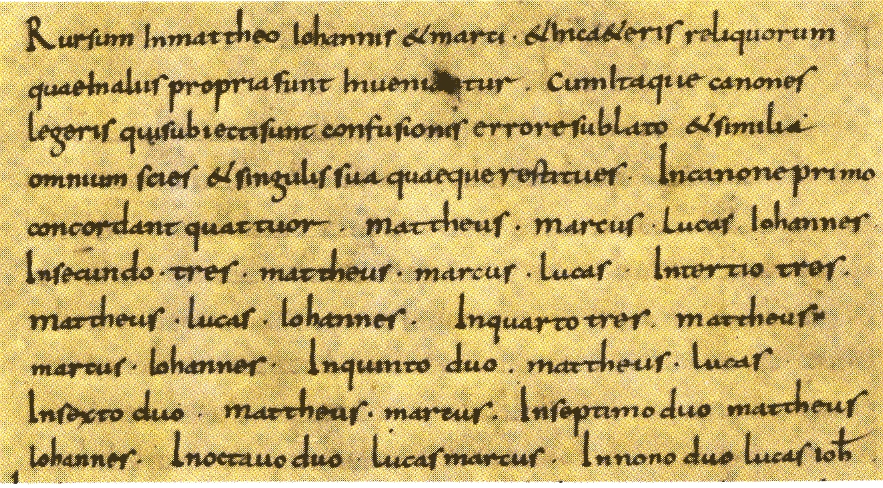 Rursum Inmattheo Iohannis &marci · &lucae&eris reliquorum
quaeInalus propria sunt Inveniatur . CumItaque canones
legeris qui subiecti sunt confusionis errore sublato &similia
omnium scies &singulis sua quaeque restitues . Incanone primo
concordant quattuor . mattheus . marcus . Lucas Iohannes
Insecundo . tres . mattheus . marcus . lucas . Intertio tres .
mattheus . lucas . Iohannes . Inquarto tres . mattheus
marcus . Iohannes . Inquinto duo . mattheus . lucas
Insexto duo . mattheus . marcus . Inseptimo duo mattheus
Iohannes . Inoctavo duo . lucas marcus . Innono duo lucas ioh